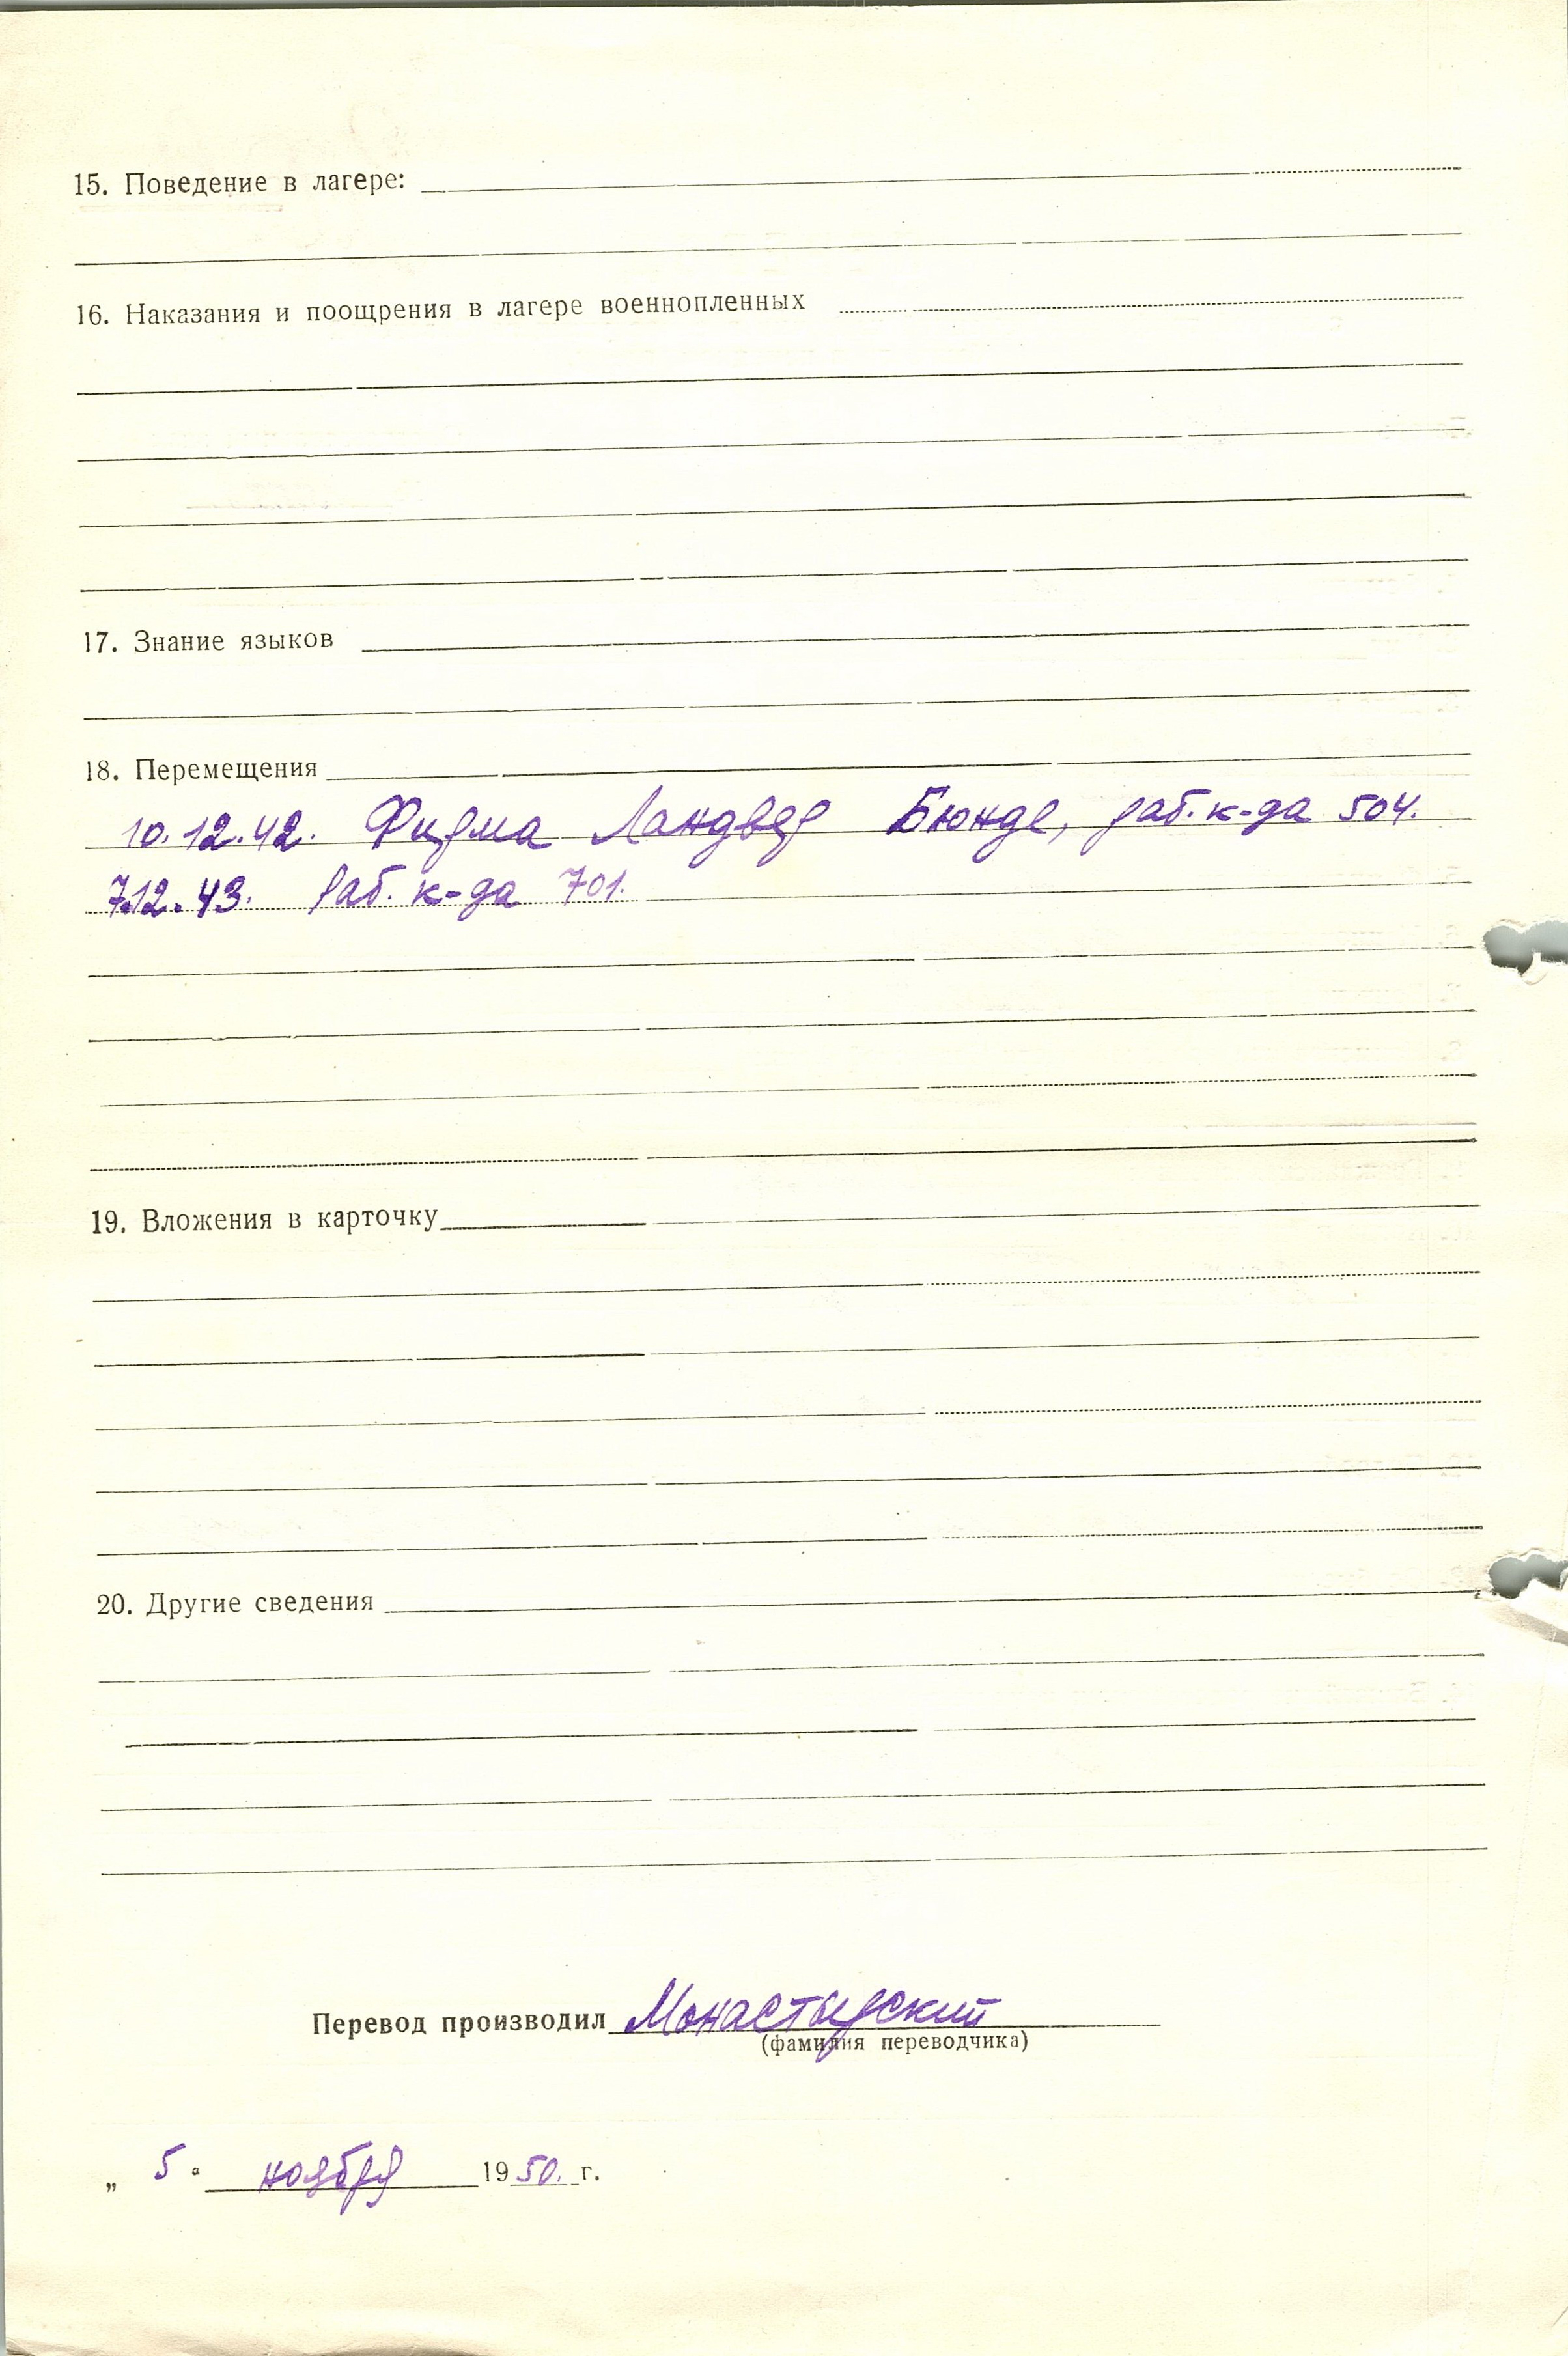 15. Поведение в лагере:
16. Наказания и поощрения в лагере военнопленных
17. Знание языков
18. Перемещения
10.12.42. Фирма Ландвер Бюнде, раб. к-да 504.
7.12.43. Раб. к-да 701.
19. Вложения в карточку
20. Другие сведения
Перевод производил Монастырский
(фамилия переводчика)
„ 5 “ ноября 1950. г.